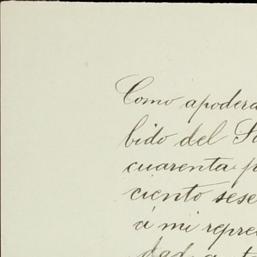 Como apodera
bido del S
cuarenta p
ciento sese
á mi repre
dad, a t